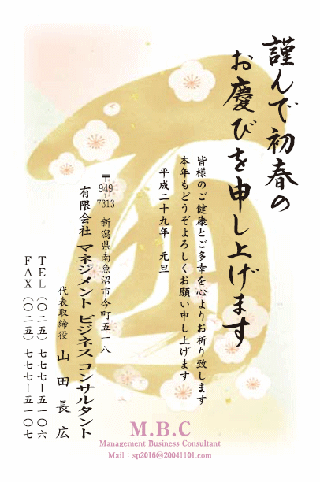 謹んで初春の
お慶びを申し上げます
皆様のご健康とご多幸を心よりお祈り致します
本年もどうぞよろしくお願い申し上げます
平成二十九年 元旦
〒949-7313 新潟県南魚沼市今町五一八
有限会社 マネジメント ビジネス コンサルタント
代表取締役 山田長広
TEL (〇二五) 七七七-五一〇六
FAX (〇二五) 七七七-五一〇七
酉
M.B.C
Management Business Consultant
Mail : sp2016@20041101.com